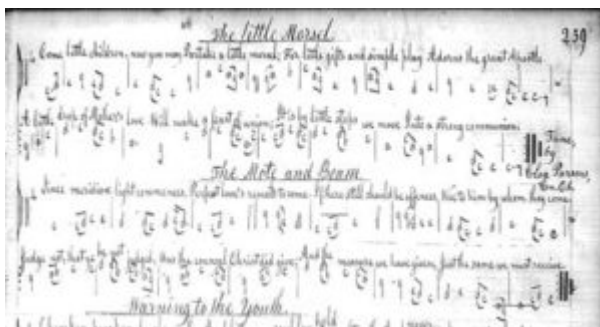 The Little Morsel
239
Come little children, now you may Partake a little morsel; For little gifts and simple play Adorns the great Apostle.
A little drop of Mother's love Will make a feast of union; It is by little steps we move Into a strong communion.
Tune,
by
Cleg Parsons,
The Mote and Beam
Since meridian light commences, Perfect love's remedy to some. If there still should be offences, Woe to him by whom they come.
Judge not, that ye be not judged, was the counsel Christ did give; And the measure we have given, Just the same we must receive.
Warning to the Youth.